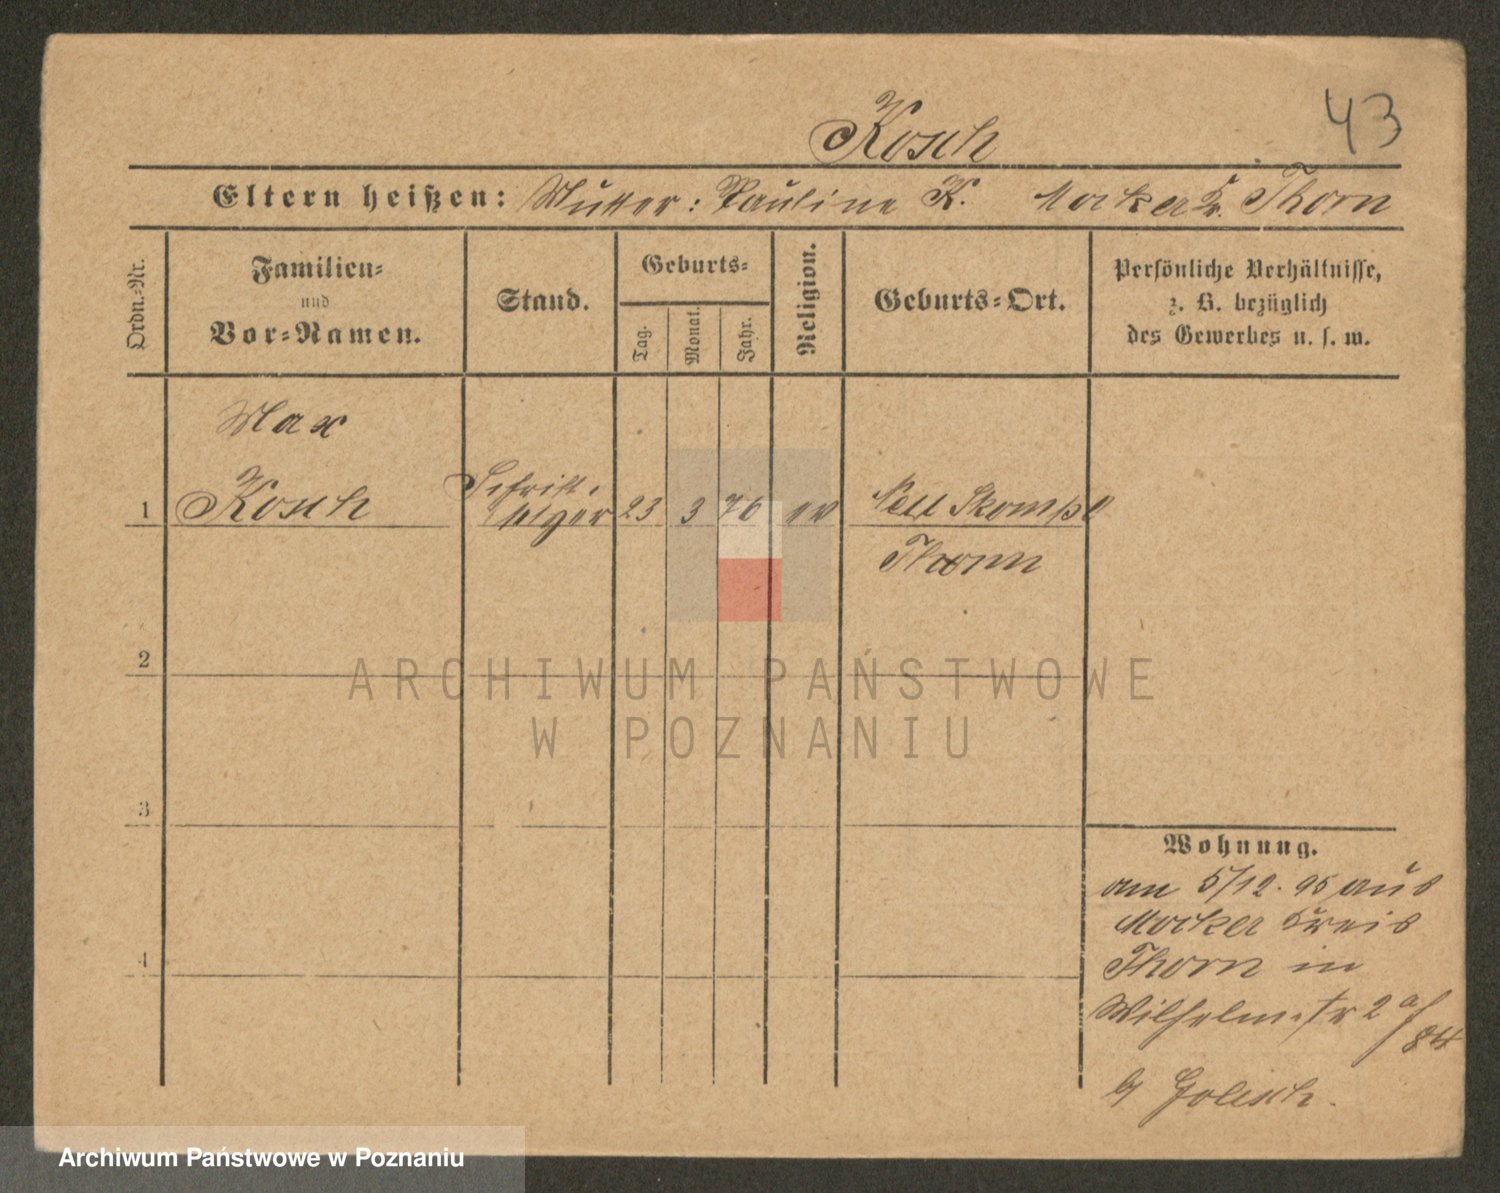 43
Kosch
Eltern heißen: Mutter: Pauline K. Mocker Kr. Thorn
Ordn.-Nr.
Familien-
und
Vor-Namen.
Stand.
Geburts-
Tag.
Monat.
Jahr.
Religion.
Geburts-Ort.
Persönliche Verhältnisse,
z. B. bezüglich
des Gewerbes u. s. w.
Max
1 Kosch
Schrift-
setzer
23 3 76 ev
Neu Skompe
Thorn
2
3
4
Wohnung.
am 5/12. 95 aus
Mocker Kreis
Thorn in
Wilhelmstr 2 a/
84
b/ Golisch.
ARCHIWUM PAŃSTWOWE
W POZNANIU
Archiwum Państwowe w Poznaniu